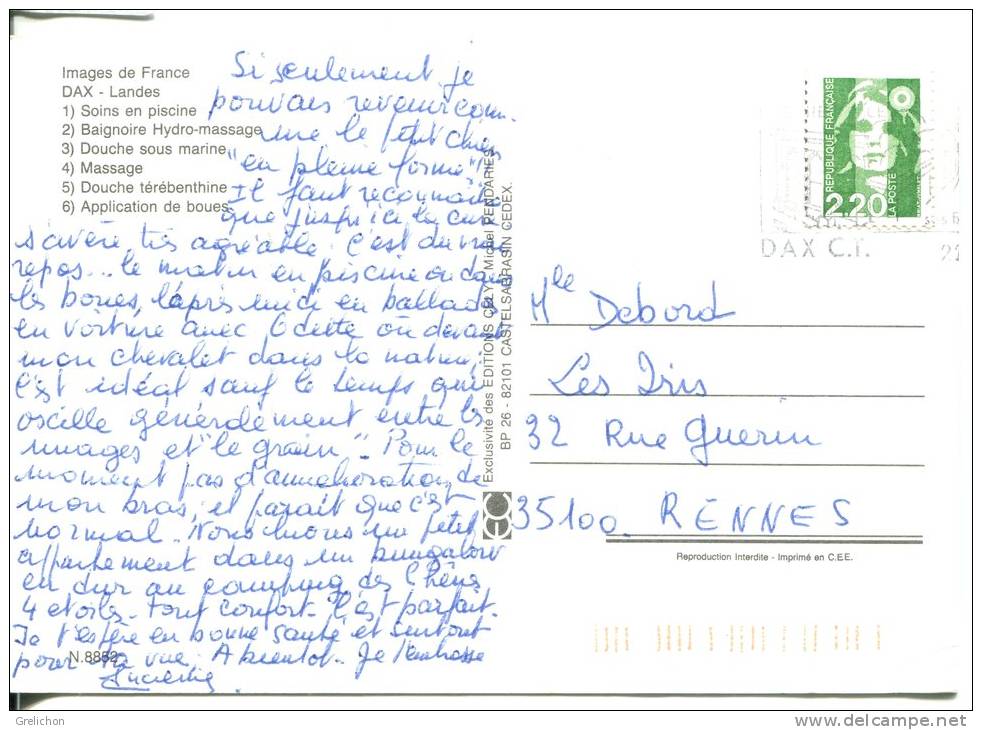 Images de France
DAX - Landes
1) Soins en piscine
2) Baignoire Hydro-massage
3) Douche sous marine
4) Massage
5) Douche térébenthine
6) Application de boues
Si seulement je
pouvais revenir com-
me le petit chien
"en pleine forme"!
Il faut reconnaitre
que jusqu'ici la cure
s'avère très agréable. C'est du vrai
repos... le matin en piscine ou dans
les boues, l'après midi en ballades
en voiture avec Odette ou devant
mon chevalet dans la nature;
c'est idéal sauf le temps qui
oscille généralement entre les
nuages et "le grain". Pour le
moment pas d'amélioration de
mon bras, il parait que c'est
normal. Nous louons un petit
appartement dans un bungalow
en dur au camping des Chênes
4 étoiles. tout confort. C'est parfait.
Je t'espère en bonne santé et surtout
pour ta vue. A bientôt. Je t'embrasse
Lucienne
N.8852
Exclusivité des EDITIONS CELY Michel PENDARIES
BP 26 - 82101 CASTELSARRASIN CEDEX.
REPUBLIQUE FRANÇAISE
2,20
LA POSTE
DAX C.T.
Mlle Debord
Les Iris
32 Rue Guerin
35100 RENNES
Reproduction Interdite - Imprimé en C.E.E.
Grelichon
www.delcampe.net